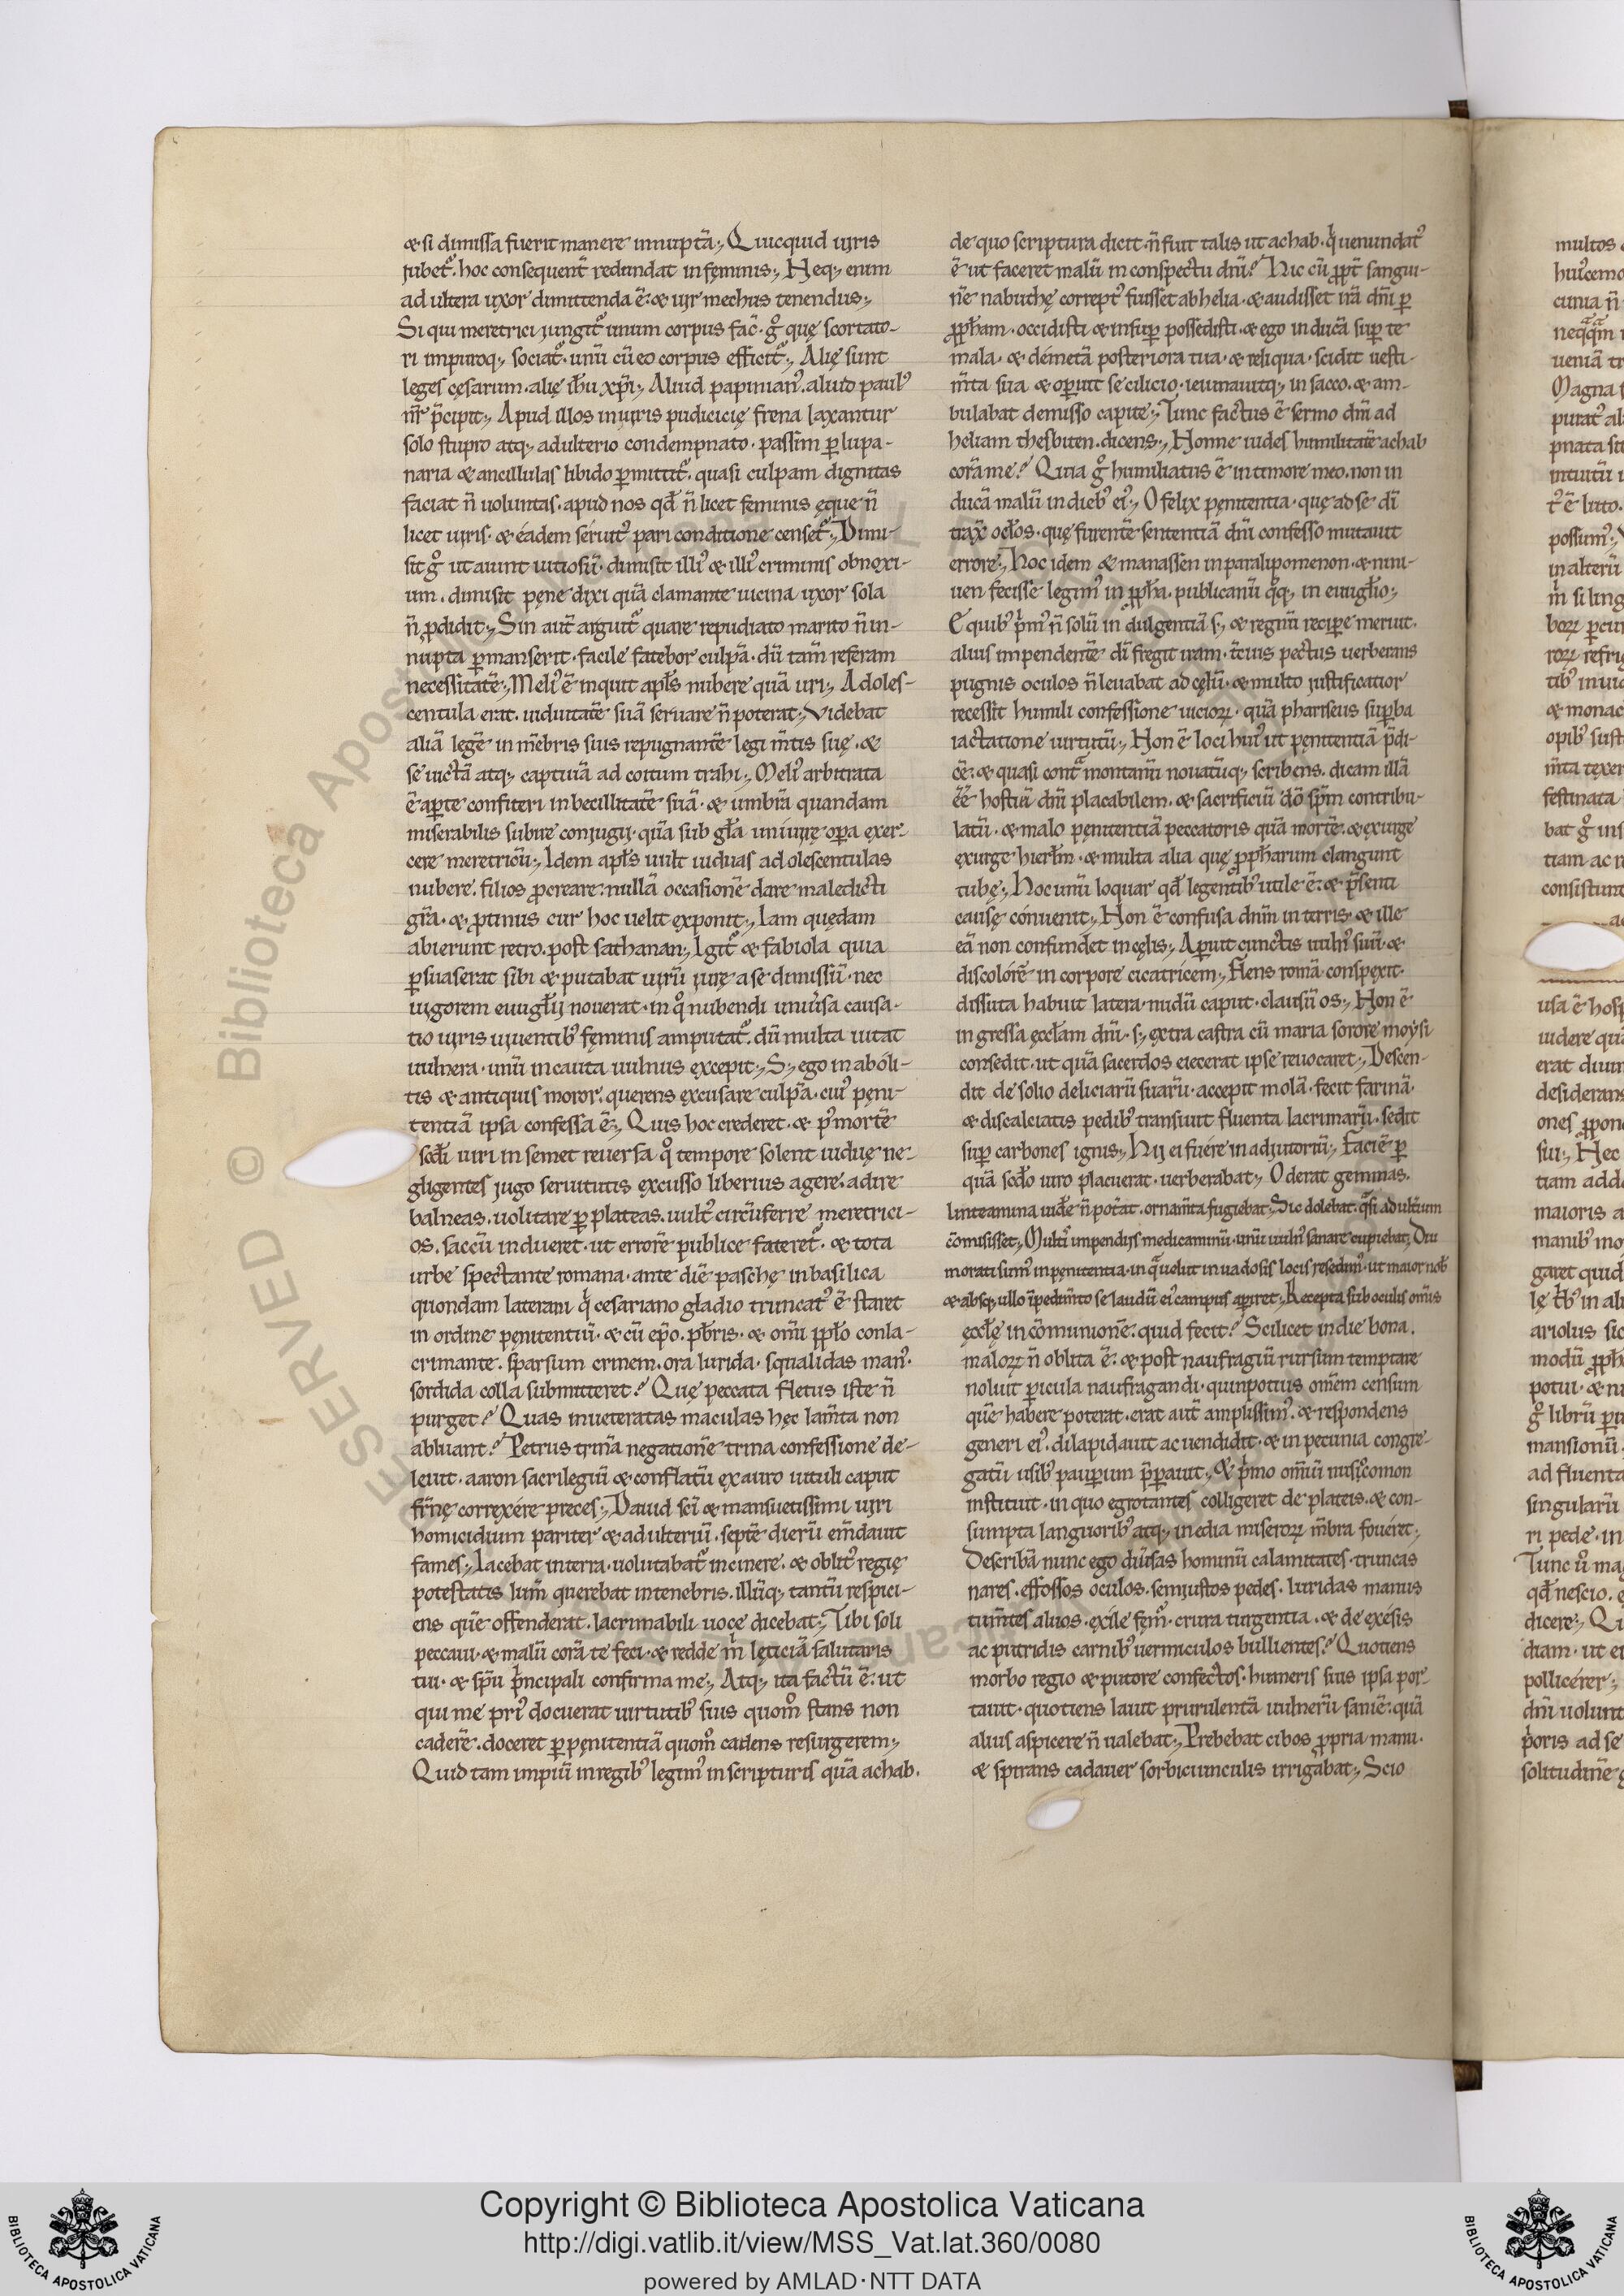 & si dimissa fuerit manere innuptā; Quicquid uiris
iubet᷑. hoc consequent̄ redundat in fęminis; Neq; enim
adultera uxor dimittenda ē: & uir mechus tenendus;
Si qui meretrici iungit᷑ unum corpus fac̄. gͦ quę scortato-
ri impuroq; sociat᷑. unū cū eo corpus efficit᷑; Alię sunt
leges cęsarum. alię ihū xp̄i; Aliud papinianꝰ. aliud paulꝰ
nr̄ p̄cipit; Apud illos in uiris pudicicię frena laxantur
solo stupro atq; adulterio condempnato. passim ꝑ lupa-
naria & ancillulas libido ꝑmittit᷑. quasi culpam dignitas
faciat n̄ uoluntas. apud nos qđ n̄ licet feminis ęque n̄
licet uiris. & eadem seruitꝰ pari conditione censet᷑; Dimi-
sit gͦ ut aiunt uitiosū. dimisit illiꝰ & illiꝰ criminis obnoxi-
um. dimisit pęne dixi quā clamante uicina uxor sola
n̄ ꝓdidit; Sin aut̄ arguit᷑ quare repudiato marito n̄ in-
nupta ꝑmanserit. facile fatebor culpā. dū tam̄ referam
necessitatē; Meliꝰ ē inquit apl̄s nubere quā uri; Adoles-
centula erat. uiduitatē suā seruare n̄ poterat; Videbat
aliā legē in mēbris suis repugnantē legi m̄tis suę. &
se uictā atq; captiuā ad coitum trahi; Meliꝰ arbitrata
ē aꝑte confiteri inbecillitatē suā. & umbrā quandam
miserabilis subire coniugij. quā sub gl̄a uniuirę oꝑa exer-
cere meretricū; Idem apl̄s uult uiduas adolescentulas
nubere. filios ꝓcreare: nullā occasionē dare maledicti
gr̄a. & ꝓtinus cur hoc uelit exponit; Iam quędam
abierunt retro post sathanan; Igit᷑ & fabiola quia
ꝑsuaserat sibi & putabat uirū iure a se dimissū. nec
uigorem euuḡlij nouerat. in qͦ nubendi uniuersa causa-
tio uiris uiuentibꝰ fęminis amputat᷑. dū multa uitat
uulnera. unū incauta uulnus excepit; S; ego in aboli-
tis & antiquis moror. querens excusare culpā. cuiꝰ pęni-
tentiā ipsa confessa ē; Quis hoc crederet. & p̄ mortē
scđi uiri in semet reuersa qͦ tempore solent uiduę ne-
gligentes iugo seruitutis excusso liberius agere: adire
balneas. uolitare ꝑ plateas. uultꝰ circūferre meretrici-
os. saccū indueret. ut errorē publice fateret᷑. & tota
urbe spectante romana. ante diē paschę in basilica
quondam laterani qͥ cesariano gladio truncatꝰ ē staret
in ordine pęnitentiū. & cū ep̄o. pb̄ris. & om̄i ppl̄o conla-
crimante. sparsum crinem. ora lurida. squalidas manꝰ.
sordida colla submitteret? Quę peccata fletus iste n̄
purget? Quas inueteratas maculas hęc lam̄ta non
abluant? Petrus trinā negationē trina confessione de-
leuit. aaron sacrilegiū & conflatū ex auro uituli caput
fr̄nę correxere preces; Dauid sc̄i & mansuetissimi uiri
homicidium pariter & adulteriū. septē dierū em̄dauit
fames; Iacebat in terra. uolutabat᷑ in cinere. & oblitꝰ regię
potestatis lum̄ querebat in tenebris. illūq; tantū respici-
ens quē offenderat. lacrimabili uoce dicebat; Tibi soli
peccaui. & malū corā te feci. & redde mͥ lęticiā salutaris
tui. & sp̄u pͥncipali confirma me; Atq; ita factū ē. ut
qui me priꝰ docuerat uirtutibꝰ suis quomͦ stans non
cadere. doceret ꝑ pęnitentiā quomͦ cadens resurgerem;
Quid tam impiū in regibꝰ legimꝰ in scripturis quā achab.
de quo scriptura dicit. n̄ fuit talis ut achab. qͥ uenundatꝰ
ē ut faceret malū in conspectu dn̄i? Hic cū ꝓpt̄ sangui-
nē nabuthę correptꝰ fuisset ab helia. & audisset irā dn̄i ꝑ
ꝓph̄am. occidisti & insuꝑ possedisti. & ego inducā suꝑ te
mala. & demetā posteriora tua. & reliqua. scidit uesti-
m̄ta sua & oꝑuit se cilicio. ieiunauitq; in sacco. & am-
bulabat demisso capite; Tunc factus ē sermo dn̄i ad
heliam thesbiten. dicens; Nonne uides humilitatē achab
corā me? Quia gͦ humiliatus ē in timore meo. non in
ducā malū in diebꝰ eiꝰ; O felix pęnitentia. quę ad se di
trax̄ ocl̄os. quę furentē sententiā dn̄i confesso mutauit
errore; Hoc idem & manassen in paralipomenon. & nini-
uen fecisse legimꝰ in ꝓph̄a. publicanū qͦq; in euuḡlio;
E quibꝰ pͥmꝰ n̄ solū indulgentiā s; & regnū reciꝑe meruit.
alius impendentē di fregit iram. t̄cius pectus uerberans
pugnis oculos n̄ leuabat ad cęlū. & multo iustificatior
recessit humili confessione uicioꝝ. quā phariseus suꝑba
iactatione uirtutū; Non ē loci huiꝰ ut pęnitentiā p̄di-
cē. & quasi cont᷑ montanū nouatūq; scribens. dicam illā
ēē hostiā dn̄i placabilem. & sacrificiū dō sp̄m contribu-
latū. & malo pęnitentiā peccatoris quā mortē. & exurge
exurge hierl̄m. & multa alia quę ꝓph̄arum clangunt
tubę; Hoc unū loquar qđ legentibꝰ utile ē: & p̄senti
causę conuenit; Non ē confusa dn̄m in terris. & ille
eā non confundet in cęlis; Aꝑuit cunctis uulnꝰ suū. &
discolorē in corpore cicatricem; Flens romā conspexit.
dissuta habuit latera. nudū caput. clausū os; Non ē
ingressa ęccl̄am dn̄i. s; extra castra cū maria sorore moysi
consedit. ut quā sacerdos eiecerat ipse reuocaret; Descen-
dit de solio deliciarū suarū. accepit molā. fecit farinā.
& discalciatis pedibꝰ transiuit fluenta lacrimarū. sedit
suꝑ carbones ignis; Hij ei fuere in adiutoriū; Faciē ꝑ
quā scđo uiro placuerat. uerberabat; Oderat gemmas.
linteamina uidē n̄ pot̄at. ornam̄ta fugiebat; Sic dolebat. q̄si adultium
c̄omisisset; Multiꝰ impendijs medicaminū. unū uulnꝰ sanare cupiebat; Diu
morati sumꝰ in pęnitentia. in qͣ uolut in uadosis locis resedimꝰ. ut maior nob̄
& absq; ullo īpedim̄to se laudū eiꝰ campus aꝑiret; Recepta sub oculis om̄is
ęccl̄ę in cōmunionē: quid fecit? Scilicet in die bona.
maloꝝ n̄ oblita ē: & post naufragiū rursum temptare
noluit ꝑicula naufragandi. quin potius om̄em censum
quē habere poterat. erat aut̄ amplissimꝰ. & respondens
generi eiꝰ. dilapidauit ac uendidit. & in pecunia congre-
gatū usibꝰ pauꝑum p̄ꝑauit; & pͥmo om̄iū nusicomon
instituit. in quo egrotantes colligeret de plateis. & con-
sumpta languoribꝰ atq; inedia miseroꝝ m̄bra foueret;
Describā nunc ego diu̅sas hominū calamitates. truncas
nares. effossos oculos. semiustos pedes. luridas manus
tum̄tes aluos. exile fęmꝰ. crura turgentia. & de exesis
ac putridis carnibꝰ uermiculos bullientes? Quotiens
morbo regio & putore confectos. humeris suis ipsa por-
tauit. quotiens lauit prurulentā uulnerū saniē. quā
alius aspicere n̄ ualebat; Prebebat cibos ꝓpria manu.
& spirans cadauer sorbiciunculis irrigabat; Scio
multos
cunia n̄
ueniā
Magna
puratꝰ
pnata
intuitū
tꝰ ē luto.
possumꝰ;
in alterū
mͥ si ling
& monac
opibꝰ sust
m̄ta texer
festinata
bat gͦ
tiam ac
consistunt
usa ē hosp
uidere quā
desiderans
ones ꝓpon
sui; Hęc
tiam add
maioris a
manibꝰ mo
garet quid
ariolus sic
potui. &
gͦ librū
mansionū
ad fluenta
singularū
ri pede. in
Tunc
qđ nescio.
dicere; Qu
diam. ut
pollicerer;
dn̄i uolunt
ad se
solitudinē
© Biblioteca Apostolica Vaticana
Copyright © Biblioteca Apostolica Vaticana
http://digi.vatlib.it/view/MSS_Vat.lat.360/0080
powered by AMLAD·NTT DATA
BIBLIOTECA APOSTOLICA VATICANA
BIBLIOTECA APOSTOLICA VATICANA